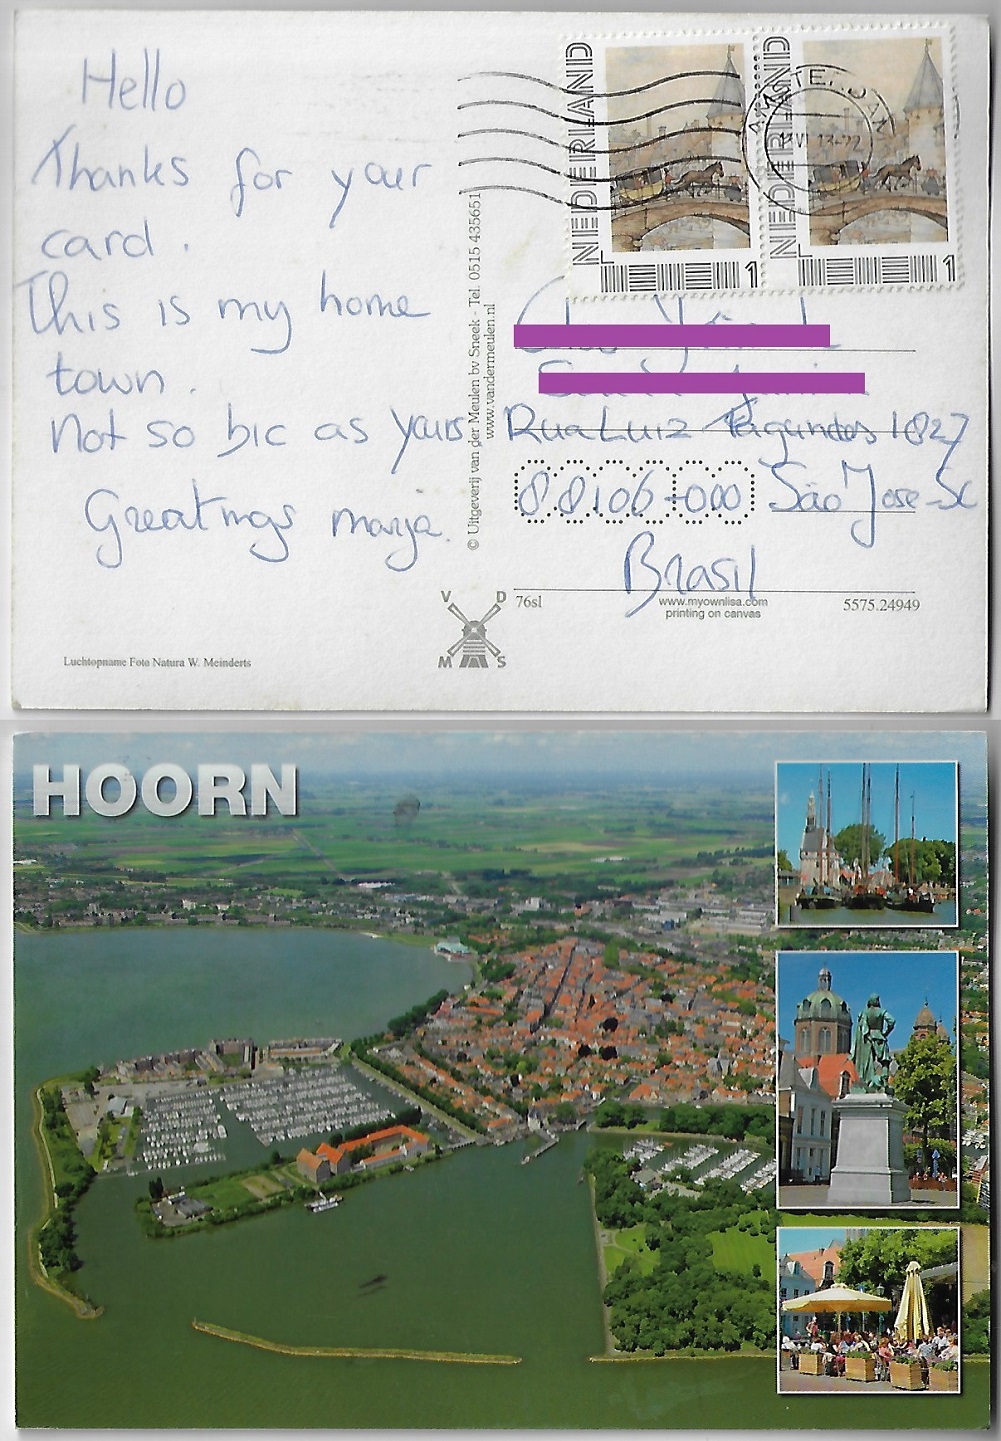 Hello
Thanks for your
card.
This is my home
town.
Not so bic as yours
Greetings marja.
Luchtopname Foto Natura W. Meinderts
© Uitgeverij van der Meulen bv Sneek - Tel. 0515 435651
www.vandermeulen.nl
V D
M S
NEDERLAND
1
NEDERLAND
1
AMSTERDAM
Rua Luiz Fagundes 1827
88106-000 São José-SC
Brasil
76sl
www.myownlisa.com
printing on canvas
5575.24949
HOORN